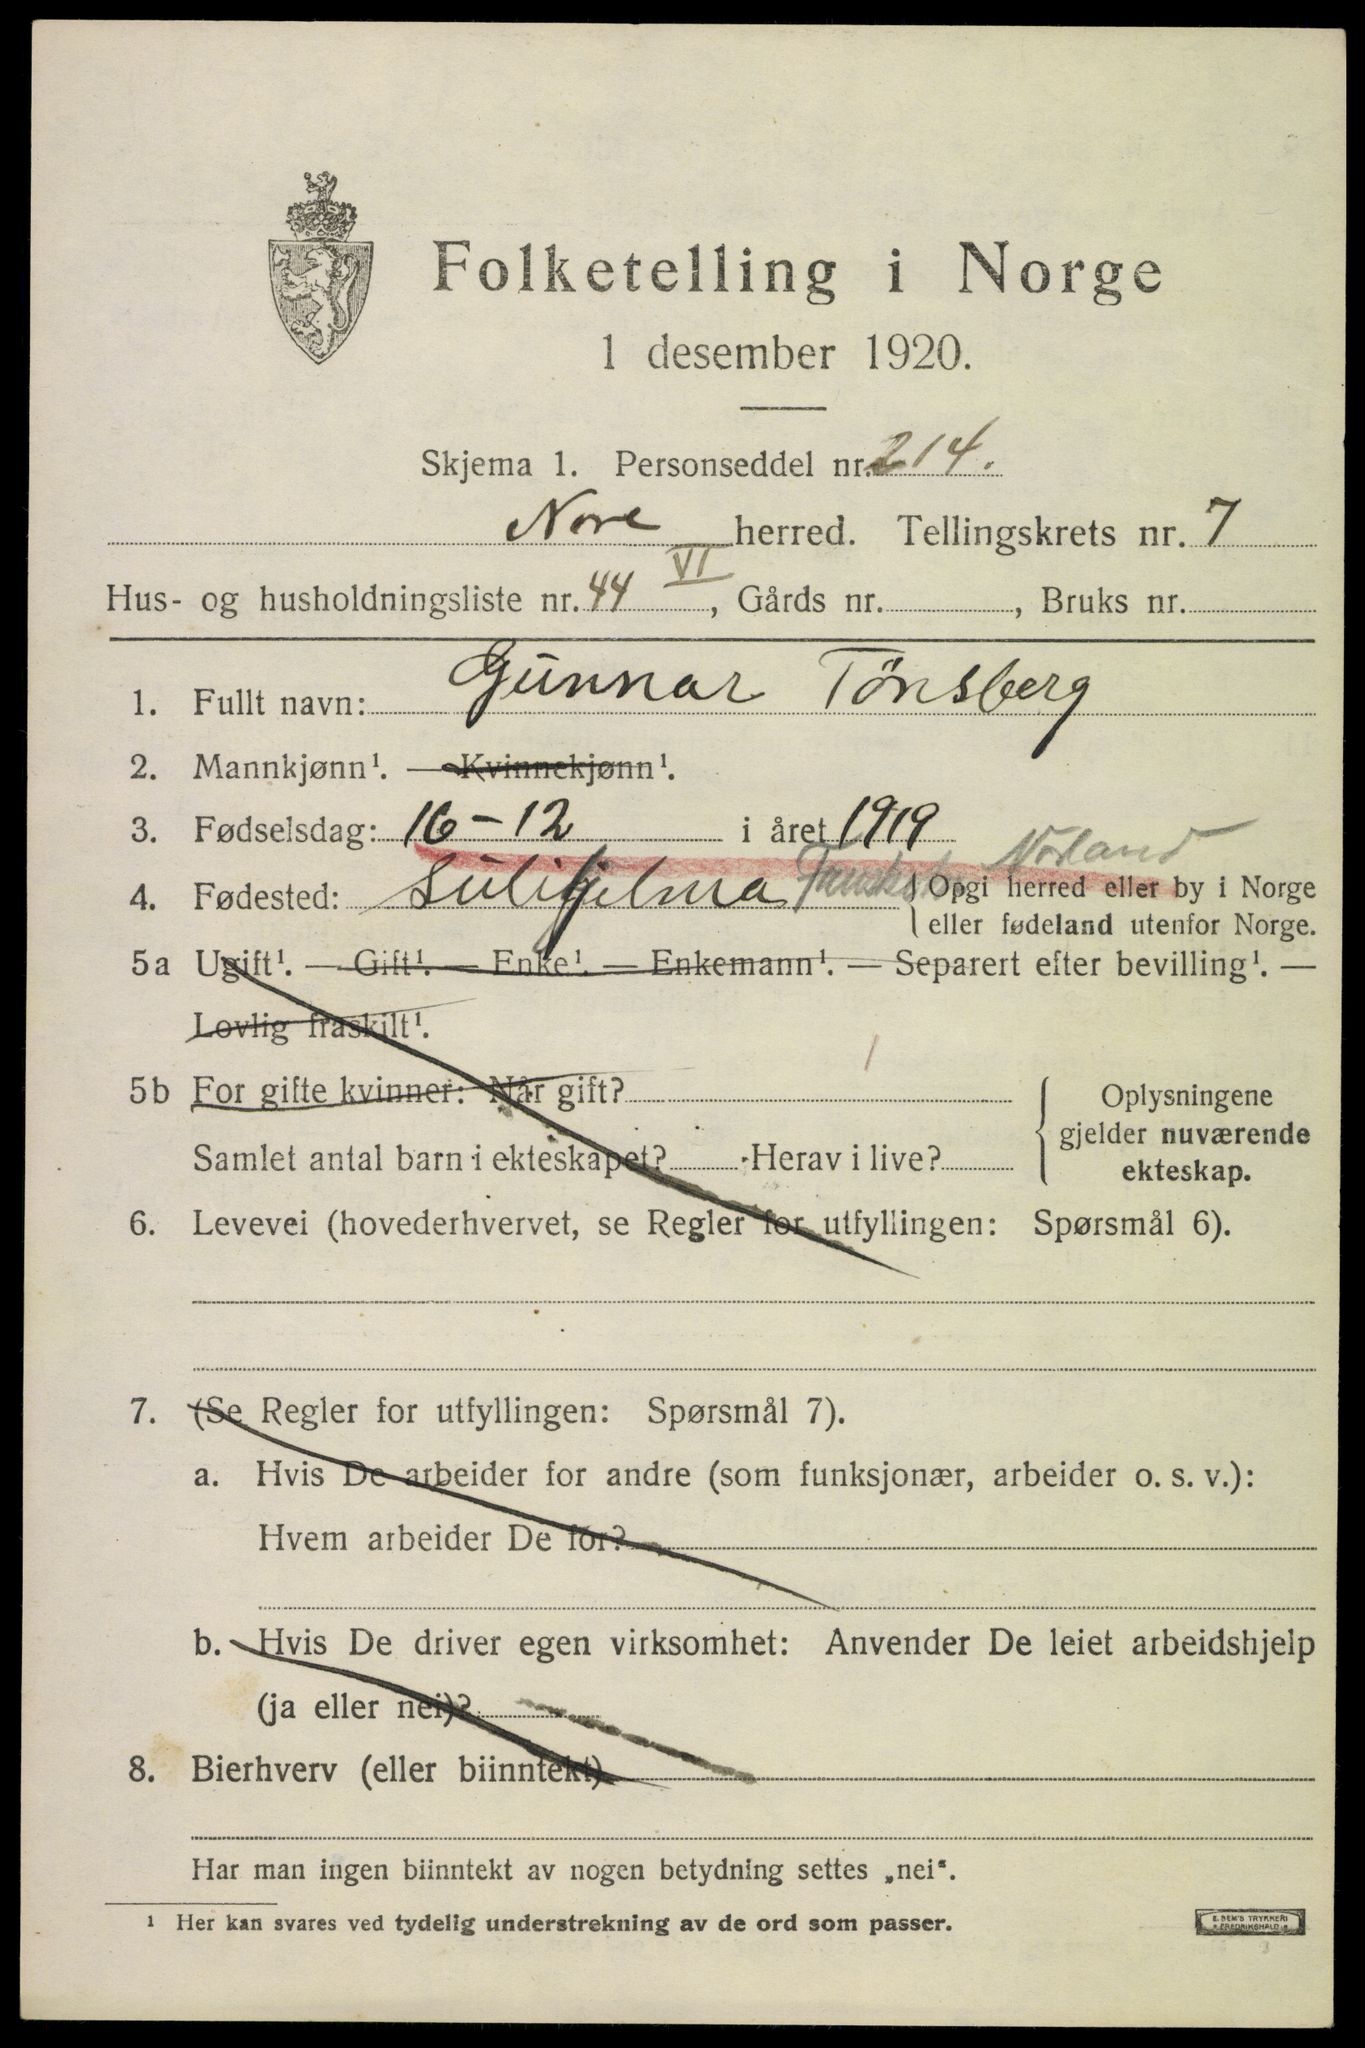 Folketelling i Norge
1 desember 1920.
Skjema 1. Personseddel nr. 214.
Nore herred. Tellingskrets nr. 7
VI
Hus- og husholdningsliste nr. 44, Gårds nr. , Bruks nr.
1. Fullt navn: Gunnar Tönsberg
2. Mannkjønn¹. — Kvinnekjønn¹.
3. Fødselsdag: 16-12 i året 1919
Norland
4. Fødested: Sulitjelma { Opgi herred eller by i Norge
eller fødeland utenfor Norge.
5a Ugift¹. — Gift¹. — Enke¹. — Enkemann¹. — Separert efter bevilling¹. —
Lovlig fraskilt¹.
5b For gifte kvinner: Når gift?
Samlet antal barn i ekteskapet? Herav i live?
Oplysningene
gjelder nuværende
ekteskap.
6. Levevei (hovederhvervet, se Regler for utfyllingen: Spørsmål 6).
7. (Se Regler for utfyllingen: Spørsmål 7).
a. Hvis De arbeider for andre (som funksjonær, arbeider o. s. v.):
Hvem arbeider De for?
b. Hvis De driver egen virksomhet: Anvender De leiet arbeidshjelp
(ja eller nei)?
8. Bierhverv (eller biinntekt)
Har man ingen biinntekt av nogen betydning settes „nei“.
¹ Her kan svares ved tydelig understrekning av de ord som passer.
E. SEM'S TRYKKERI
FREDRIKSHALD